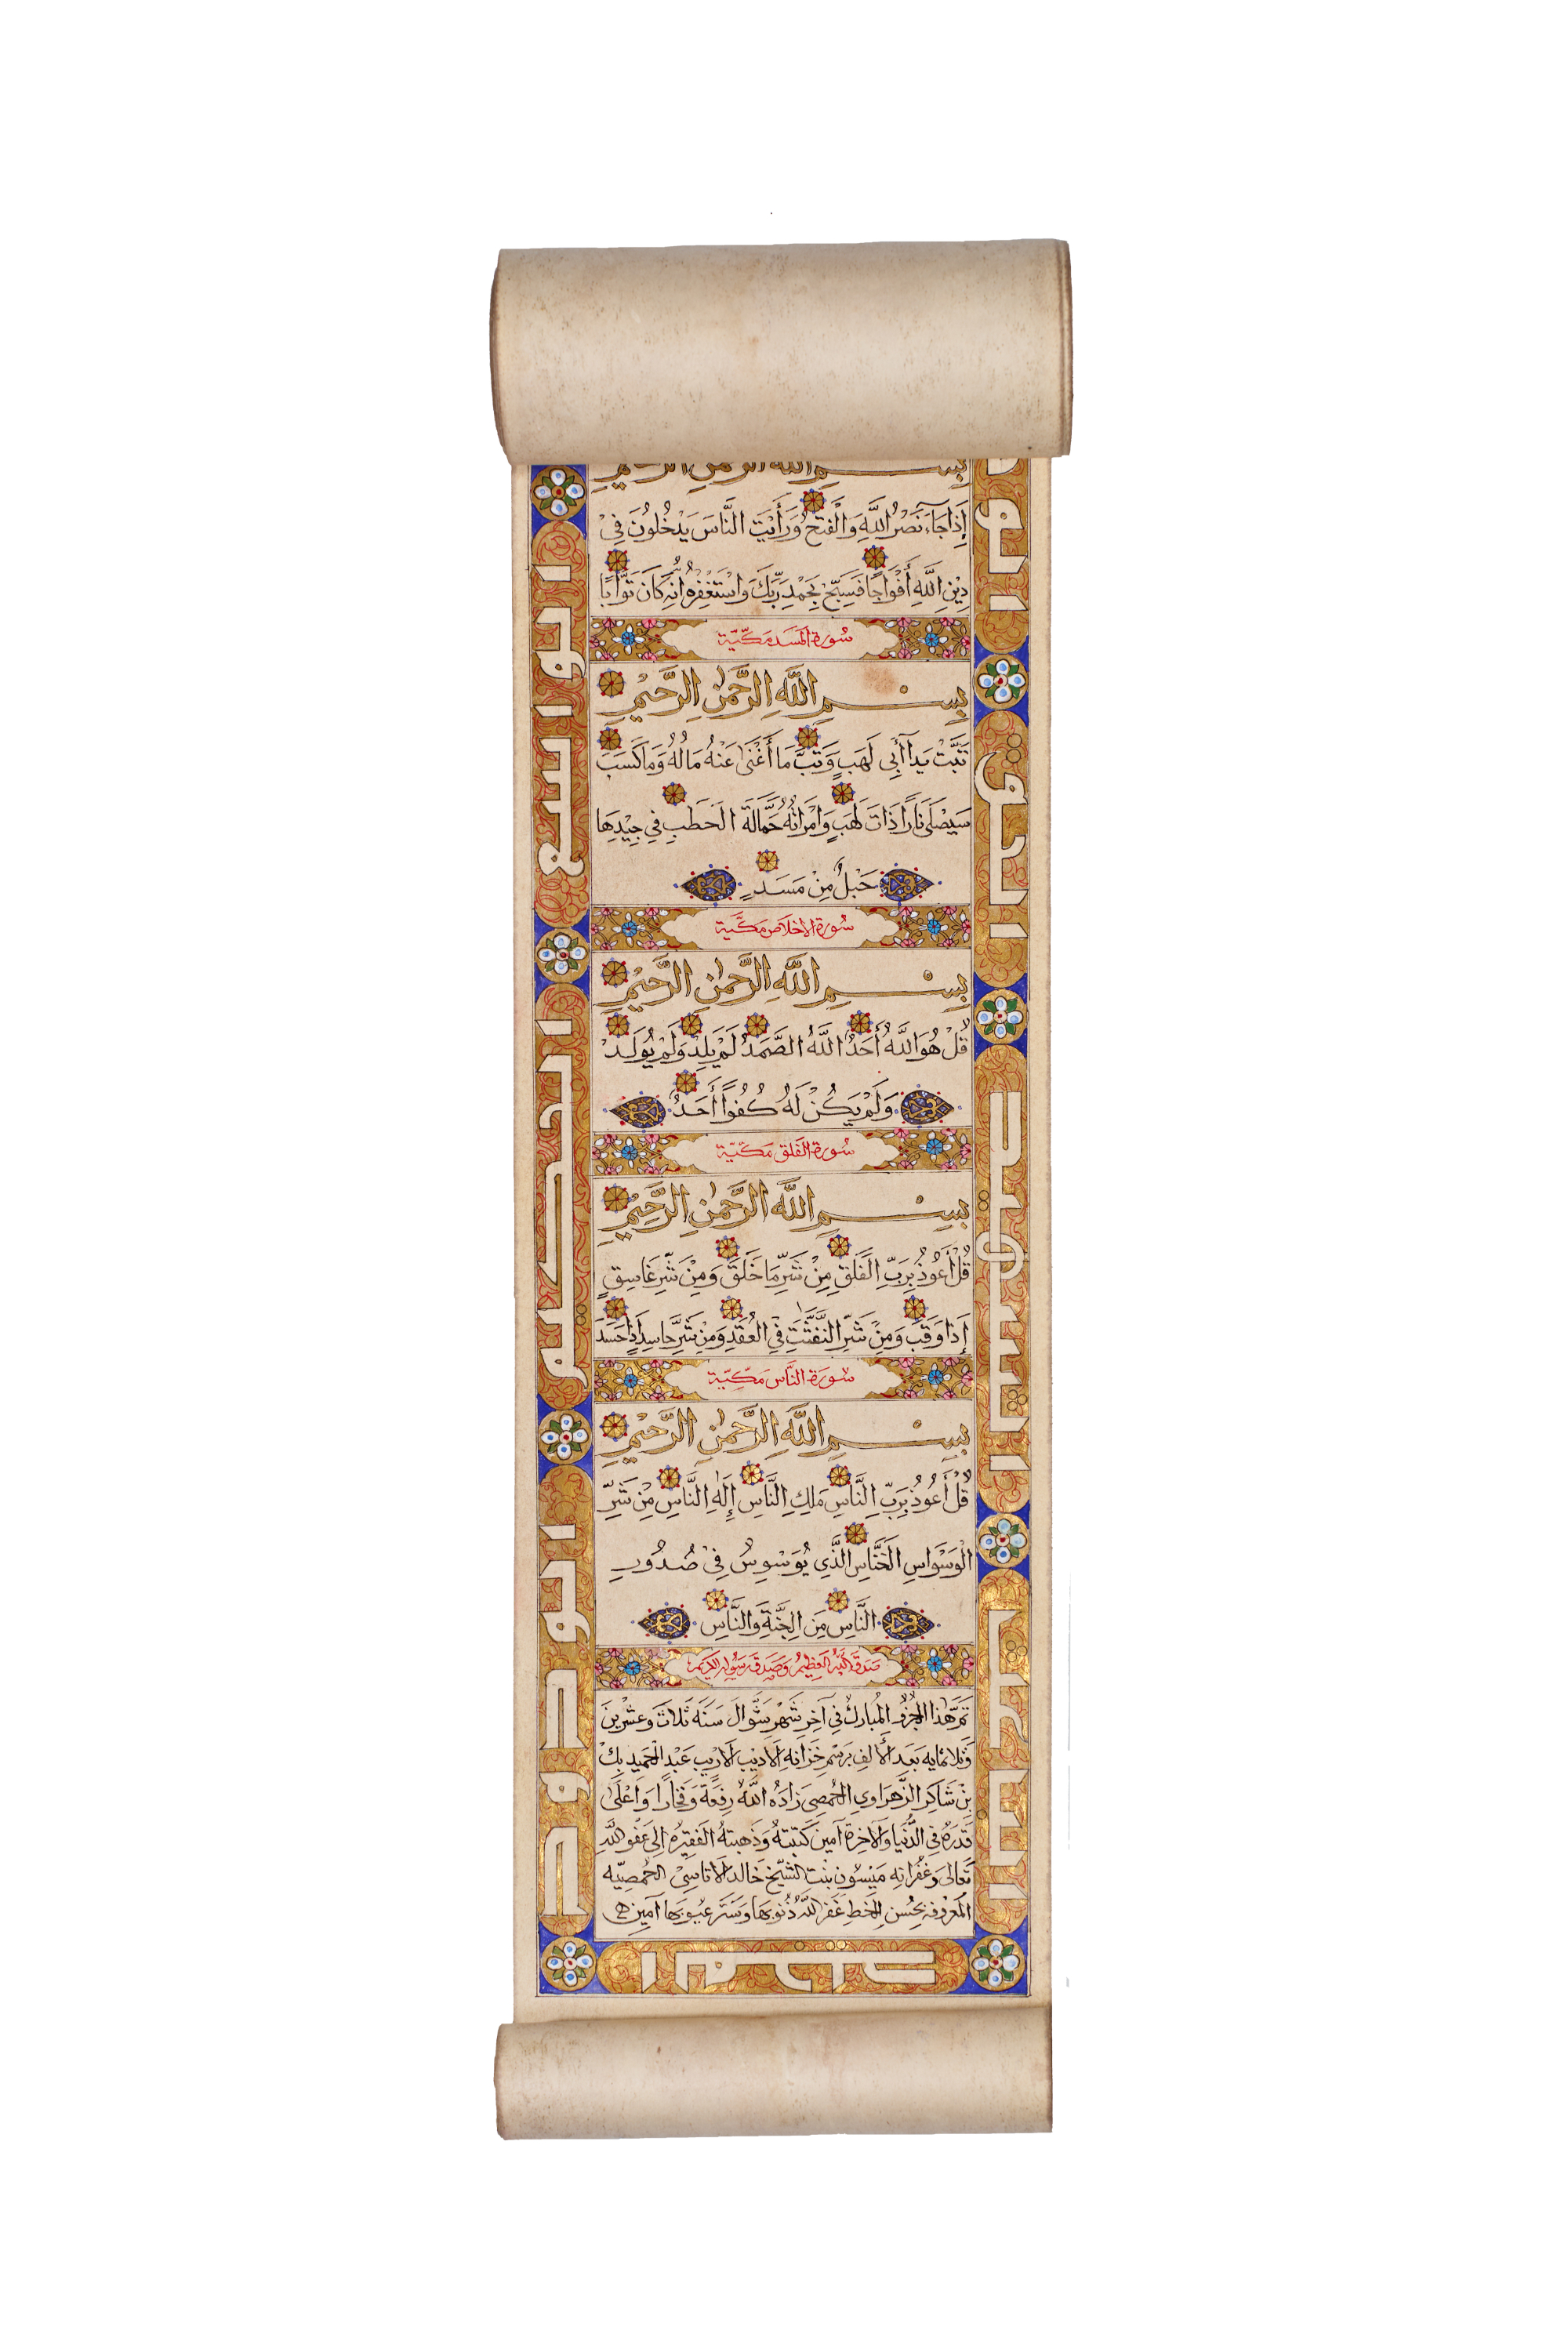 بِسْمِ اللَّهِ الرَّحْمٰنِ الرَّحِيْمِ
إِذَا جَاءَ نَصْرُ اللَّهِ وَالْفَتْحُ وَرَأَيْتَ النَّاسَ يَدْخُلُونَ فِيْ
دِيْنِ اللَّهِ أَفْوَاجًا فَسَبِّحْ بِحَمْدِ رَبِّكَ وَاسْتَغْفِرْهُ إِنَّهُ كَانَ تَوَّابًا
سُورة المَسَد مَكّيّة
بِسْمِ اللَّهِ الرَّحْمٰنِ الرَّحِيْمِ
تَبَّتْ يَدَآ أَبِي لَهَبٍ وَتَبَّ مَا أَغْنَىٰ عَنْهُ مَالُهُ وَمَا كَسَبَ
سَيَصْلَىٰ نَارًا ذَاتَ لَهَبٍ وَامْرَأَتُهُ حَمَّالَةَ الْحَطَبِ فِي جِيْدِهَا
حَبْلٌ مِنْ مَسَدٍ
سُورة الاخلاص مَكّيّة
بِسْمِ اللَّهِ الرَّحْمٰنِ الرَّحِيْمِ
قُلْ هُوَ اللَّهُ أَحَدٌ اللَّهُ الصَّمَدُ لَمْ يَلِدْ وَلَمْ يُولَدْ
وَلَمْ يَكُنْ لَهُ كُفُوًا أَحَدٌ
سُورة الفَلَق مَكّيّة
بِسْمِ اللَّهِ الرَّحْمٰنِ الرَّحِيْمِ
قُلْ أَعُوْذُ بِرَبِّ الْفَلَقِ مِنْ شَرِّ مَا خَلَقَ وَمِنْ شَرِّ غَاسِقٍ
إِذَا وَقَبَ وَمِنْ شَرِّ النَّفَّٰثَٰتِ فِي الْعُقَدِ وَمِنْ شَرِّ حَاسِدٍ إِذَا حَسَدَ
سُورَة النَّاس مَكِّيّة
بِسْمِ اللَّهِ الرَّحْمٰنِ الرَّحِيْمِ
قُلْ أَعُوْذُ بِرَبِّ النَّاسِ مَلِكِ النَّاسِ إِلَٰهِ النَّاسِ مِنْ شَرِّ
الْوَسْوَاسِ الْخَنَّاسِ الَّذِي يُوَسْوِسُ فِيْ صُدُورِ
النَّاسِ مِنَ الْجِنَّةِ وَالنَّاسِ
صَدَقَ اللَّهُ العَظِيمُ وَصَدَقَ رَسُولُه الكَرِيم
تَمَّ هٰذا الجُزْؤُ المُبارك في آخِر شَهْر شَوَّال سَنَة ثَلاث وَعِشْرين
وَثَلاثمايه بَعد الأَلف برَسْم خِزانةِ الاديب الاريب عَبْد الحَميد بك
بِنْ شَاكِر الزَّهراوي الحُمصِي زَادَهُ اللَّهُ رِفعَةً وَفَخارًا وَأعْلَىٰ
قَدرَهُ في الدُّنْيا وَالآخِرة آمين كَتَبَتهُ وَذَهَبتهُ الفَقِيرة إلى عَفْو اللَّهِ
تَعالى وَغُفْرانِه مَيْسُون بِنْت الشّيْخ خَالد الاتاسِيْ الحُمصِيّه
المَعْرُوفة بحُسْن الخَطِ غَفَر اللَّهُ ذُنُوبهَا وَسَتَر عُيُوبهَا آمِين
الودود
الحكيم
الواسع
الشهيد